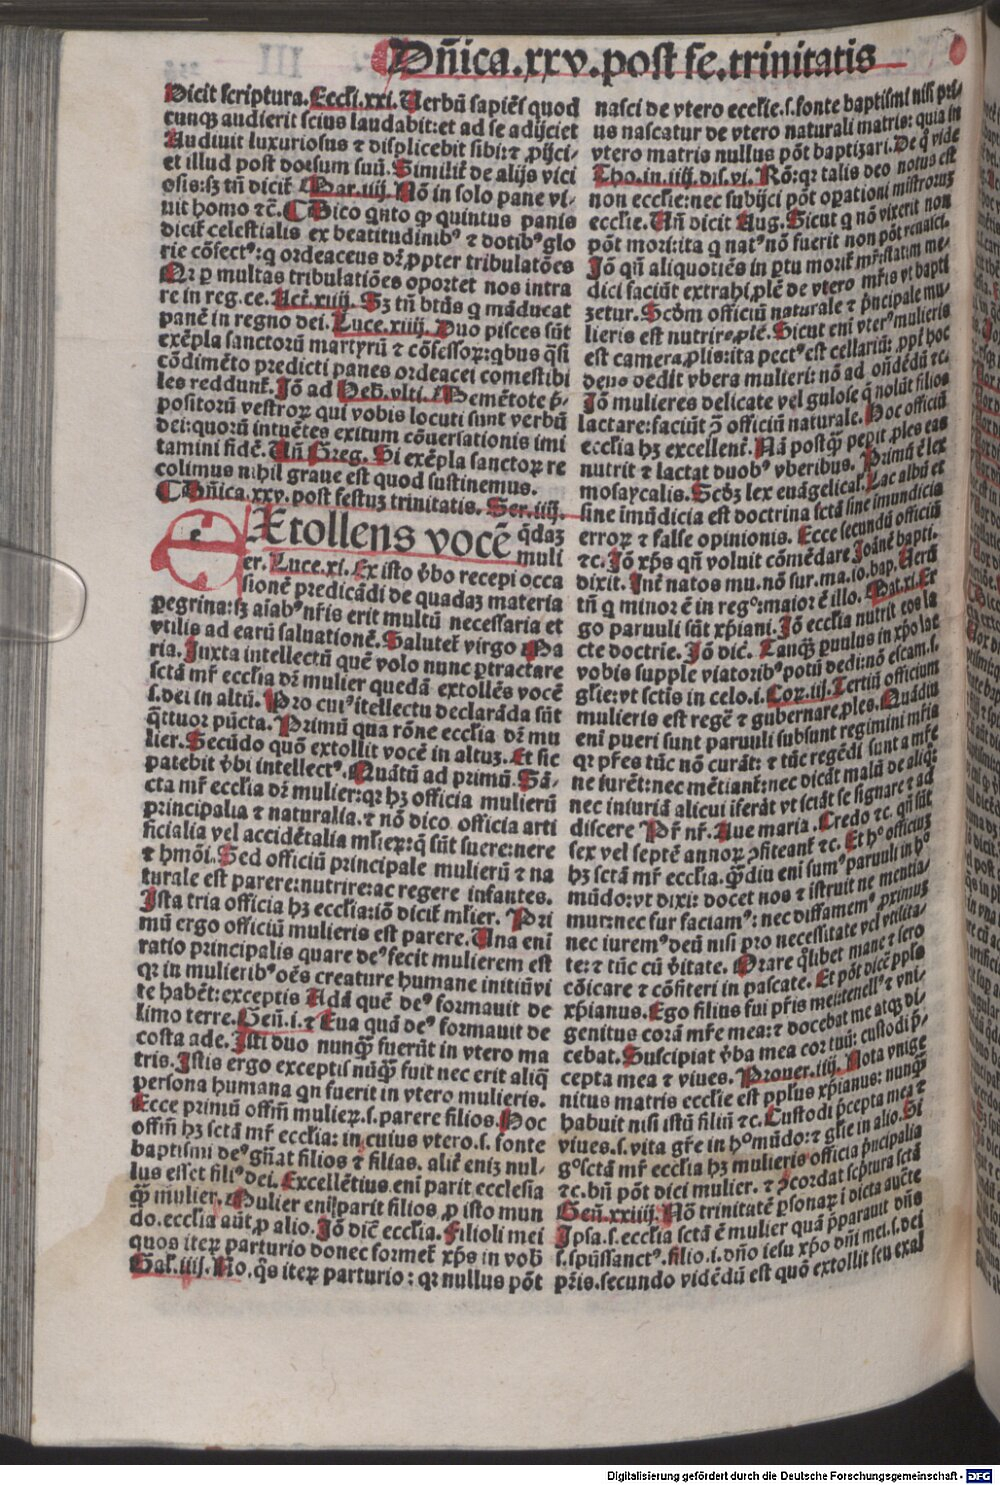 Dñica.xxv.post fe.trinitatis
Dicit scriptura.Eccli.xxi.Uerbũ sapiẽs quod
cunqȝ audierit scius laudabit:et ad se adijciet
Audiuit luxuriosus ⁊ displicebit sibi:⁊ ꝓijci-
et illud post dorsum suũ.Similit̃ de alijs vici
osis:sȝ tñ dicit̃ Mar.iiij.Nõ in solo pane vi-
uit homo ⁊c.Dico q̃nto ꝙ quintus panis
dicit̃ celestialis ex beatitudinibꝰ ⁊ dotibꝰ glo
rie cõfectꝰ:q ordeaceus dȓ ꝓpter tribulatões
Qȝ ꝑ multas tribulatiões oportet nos intra
re in reg.ce.Act̃.xiiij.Sȝ tñ btũs q mãducat
panẽ in regno dei.Luce.xiiij.Duo pisces sũt
exẽpla sanctorũ martyrũ ⁊ cõfessoꝝ:qbus q̃si
cõdimẽto predicti panes ordeacei comestibi
les reddunt̃.Jõ ad Heb̃.vlti.Memẽtote p̃-
positorũ vestroꝝ qui vobis locuti sunt verbũ
dei:quorũ intuẽtes exitum cõuersationis imi
tamini fidẽ.Uñ Greg.Si exẽpla sanctoꝝ re
colimus nihil graue est quod sustinemus.
Dñica.xxv.post festuȝ trinitatis.Ser.iiij.
Extollens vocẽ q̃daȝ
muli
er.Luce.xi.Ex isto v̓bo recepi occa
sionẽ predicãdi de quadaȝ materia
pegrina:sȝ aĩabꝰ nr̃is erit multũ necessaria et
vtilis ad earũ saluationẽ.Salutet̃ virgo Ma
ria.Juxta intellectũ quẽ volo nunc ꝑtractare
sctã mr̃ ecclia dȓ mulier quedã extollẽs vocẽ
s.dei in altũ.Pro cuiꝰ itellectu declarãda sũt
q̃ttuor pũcta.Primũ qua rõne ecclia dȓ mu
lier.Secũdo quõ extollit vocẽ in altuȝ.Et sic
patebit v̓bi intellectꝰ.Quãtũ ad primũ.Sã-
cta mr̃ ecclia dȓ mulier:qȝ hȝ officia mulierũ
principalia ⁊ naturalia.⁊ nõ dico officia arti
ficialia vel accidẽtalia mlieꝝ:q̃ sũt suere:nere
⁊ hmõi.Sed officiũ principale mulierũ ⁊ na
turale est parere:nutrire:ac regere infantes.
Jsta tria officia hȝ ecclia:iõ dicit̃ mlier. Pri
mũ ergo officiũ mulieris est parere.Una eni
ratio principalis quare deꝰ fecit mulierem est
qȝ in mulieribꝰ oẽs creature humane initiũ vi
te habẽt:exceptis Adã quẽ deꝰ formauit de
limo terre.Geñ.i.⁊ Eua quã deꝰ formauit de
costa ade.Jsti duo nunqȝ fuerũt in vtero ma
tris.Jstis ergo exceptis nũqȝ fuit nec erit aliq̃
persona humana qn fuerit in vtero mulieris.
Ecce primũ offm̃ mulieꝝ.s.parere filios.Hoc
offm̃ hȝ sctã mr̃ ecclia: in cuius vtero.s.fonte
baptismi deꝰ gñat filios ⁊ filias. alit̃ eniȝ nul-
lus esset filiꝰ dei.Excellẽtius eni parit ecclesia
qȝ mulier.Mulier eni parit filios ꝓ isto mun
do.ecclia aũt ꝓ alio.Jõ dic̃ ecclia.Filioli mei
quos iteꝝ parturio donec formet̃ xp̃s in vob̃
Gal̃.iiij.No.q̃s iteꝝ parturio: qȝ nullus põt
nasci de vtero ecclie.s.fonte baptismi nisi pri-
us nascatur de vtero naturali matris: quia in
vtero matris nullus põt baptizari.De q̃ vide
Tho.in.iiij.dis.vi. Rõ:qȝ talis deo notus est
non ecclie:nec subijci põt operationi mĩstroruȝ
ecclie.Uñ dicit Aug.Sicut q nõ vixerit non
põt mori:ita q natꝰ nõ fuerit non põt renasci.
Jõ qñ aliquoties in ꝑtu morit̃ mr̃:statim me-
dici faciũt extrahi ꝓlẽ de vtero mr̃is vt bapti
zetur.Scd̃m officiũ naturale ⁊ p̃ncipale mu
lieris est nutrire ꝓlẽ.Sicut eni vterꝰ mulieris
est camera ꝓlis:ita pectꝰ est cellariũ: ꝓpt̃ hoc
deus dedit vbera mulieri: nõ ad oñdẽdũ ⁊c.
Jõ mulieres delicate vel gulose q̃ nolũt filios
lactare:faciũt ↄ̃ officiũ naturale. Hoc officiũ
ecclia hȝ excellent̃. Nã postqȝ pepit ꝓles eas
nutrit ⁊ lactat duobꝰ vberibus. Primũ ẽ lex
mosaycalis.Scd̃ȝ lex euãgelica.Lac albũ et
sine imũdicia est doctrina sctã sine imundicia
erroꝝ ⁊ false opinionis.Ecce secundũ officiũ
⁊c.Jõ xp̃s qñ voluit cõmẽdare Joãnẽ bapti.
dixit.Jnt̃ natos mu.nõ sur.ma.io.bap.Uerũ
tñ q minor ẽ in regꝰ:maior ẽ illo. Mat.xi.Er
go paruuli sũt xp̃iani.Jõ ecclia nutrit eos la
cte doctrie.Jõ dic̃.Tanqȝ ꝑuulis in xp̃o lac
vobis supple viatoribꝰ potũ dedi:nõ escam.s.
glie:vt sctis in celo.i.Coꝝ.iij.Tertiũ officium
mulieris est regẽ ⁊ gubernare ꝓles. Quãdiu
eni pueri sunt paruuli subsunt regimini mr̃is
qȝ pr̃es tũc nõ curãt: ⁊ tũc regẽdi sunt a mr̃e
ne iurẽt:nec mẽtiant̃:nec dicãt malũ de aliq̃:
nec iniuriã alicui iferãt vt sciãt se signare ⁊ ad
discere Pr̃ nr̃.Aue maria.Credo ⁊c.qñ sũt
sex vel septẽ annoꝝ ꝓfiteant̃ ⁊c. Et hꝰ officiuȝ
hȝ sctã mr̃ ecclia.q̃diu eni sumꝰ paruuli in hꝰ
mũdo:vt dixi: docet nos ⁊ istruit ne mentia-
mur:nec fur faciamꝰ: nec diffamemꝰ proximuȝ
nec iuremꝰ deũ nisi pro necessitate vel vtilita-
te:⁊ tũc cũ v̓itate. Orare q̃libet mane ⁊ sero
cõicare ⁊ cõfiteri in pascate. Et põt dicẽ ppl̃s
xp̃ianus.Ego filius fui pr̃is mei tenellꝰ ⁊ vni-
genitus corã mr̃e mea:⁊ docebat me atqȝ di-
cebat.Suscipiat v̓ba mea cor tuũ: custodi p̃-
cepta mea ⁊ viues. Prouer.iiij. Nota vnige
nitus matris ecclie est pplus xp̃ianus: nunqȝ
habuit nisi istũ filiũ ⁊c.Custodi p̃cepta mea ⁊
viues.s.vita gr̃e in hꝰ mũdo:⁊ glie in alio.Si
gꝰ sctã mr̃ ecclia hȝ mulieris officia p̃ncipalia
⁊c.bñ põt dici mulier. ⁊ ↄ̃cordat sc̃ptura sctã
Geñ.xxiiij.Nõ trinitatẽ ꝑsonaꝝ i dicta aucte
Jpsa.s.ecclia sctã ẽ mulier quã p̃parauit dñs
s.spũssanctꝰ.filio.i.dño iesu xp̃o dñi mei.s.dei
pr̃is.secundo vidẽdũ est quõ extollit seu exal
Digitalisierung gefördert durch die Deutsche Forschungsgemeinschaft - DFG